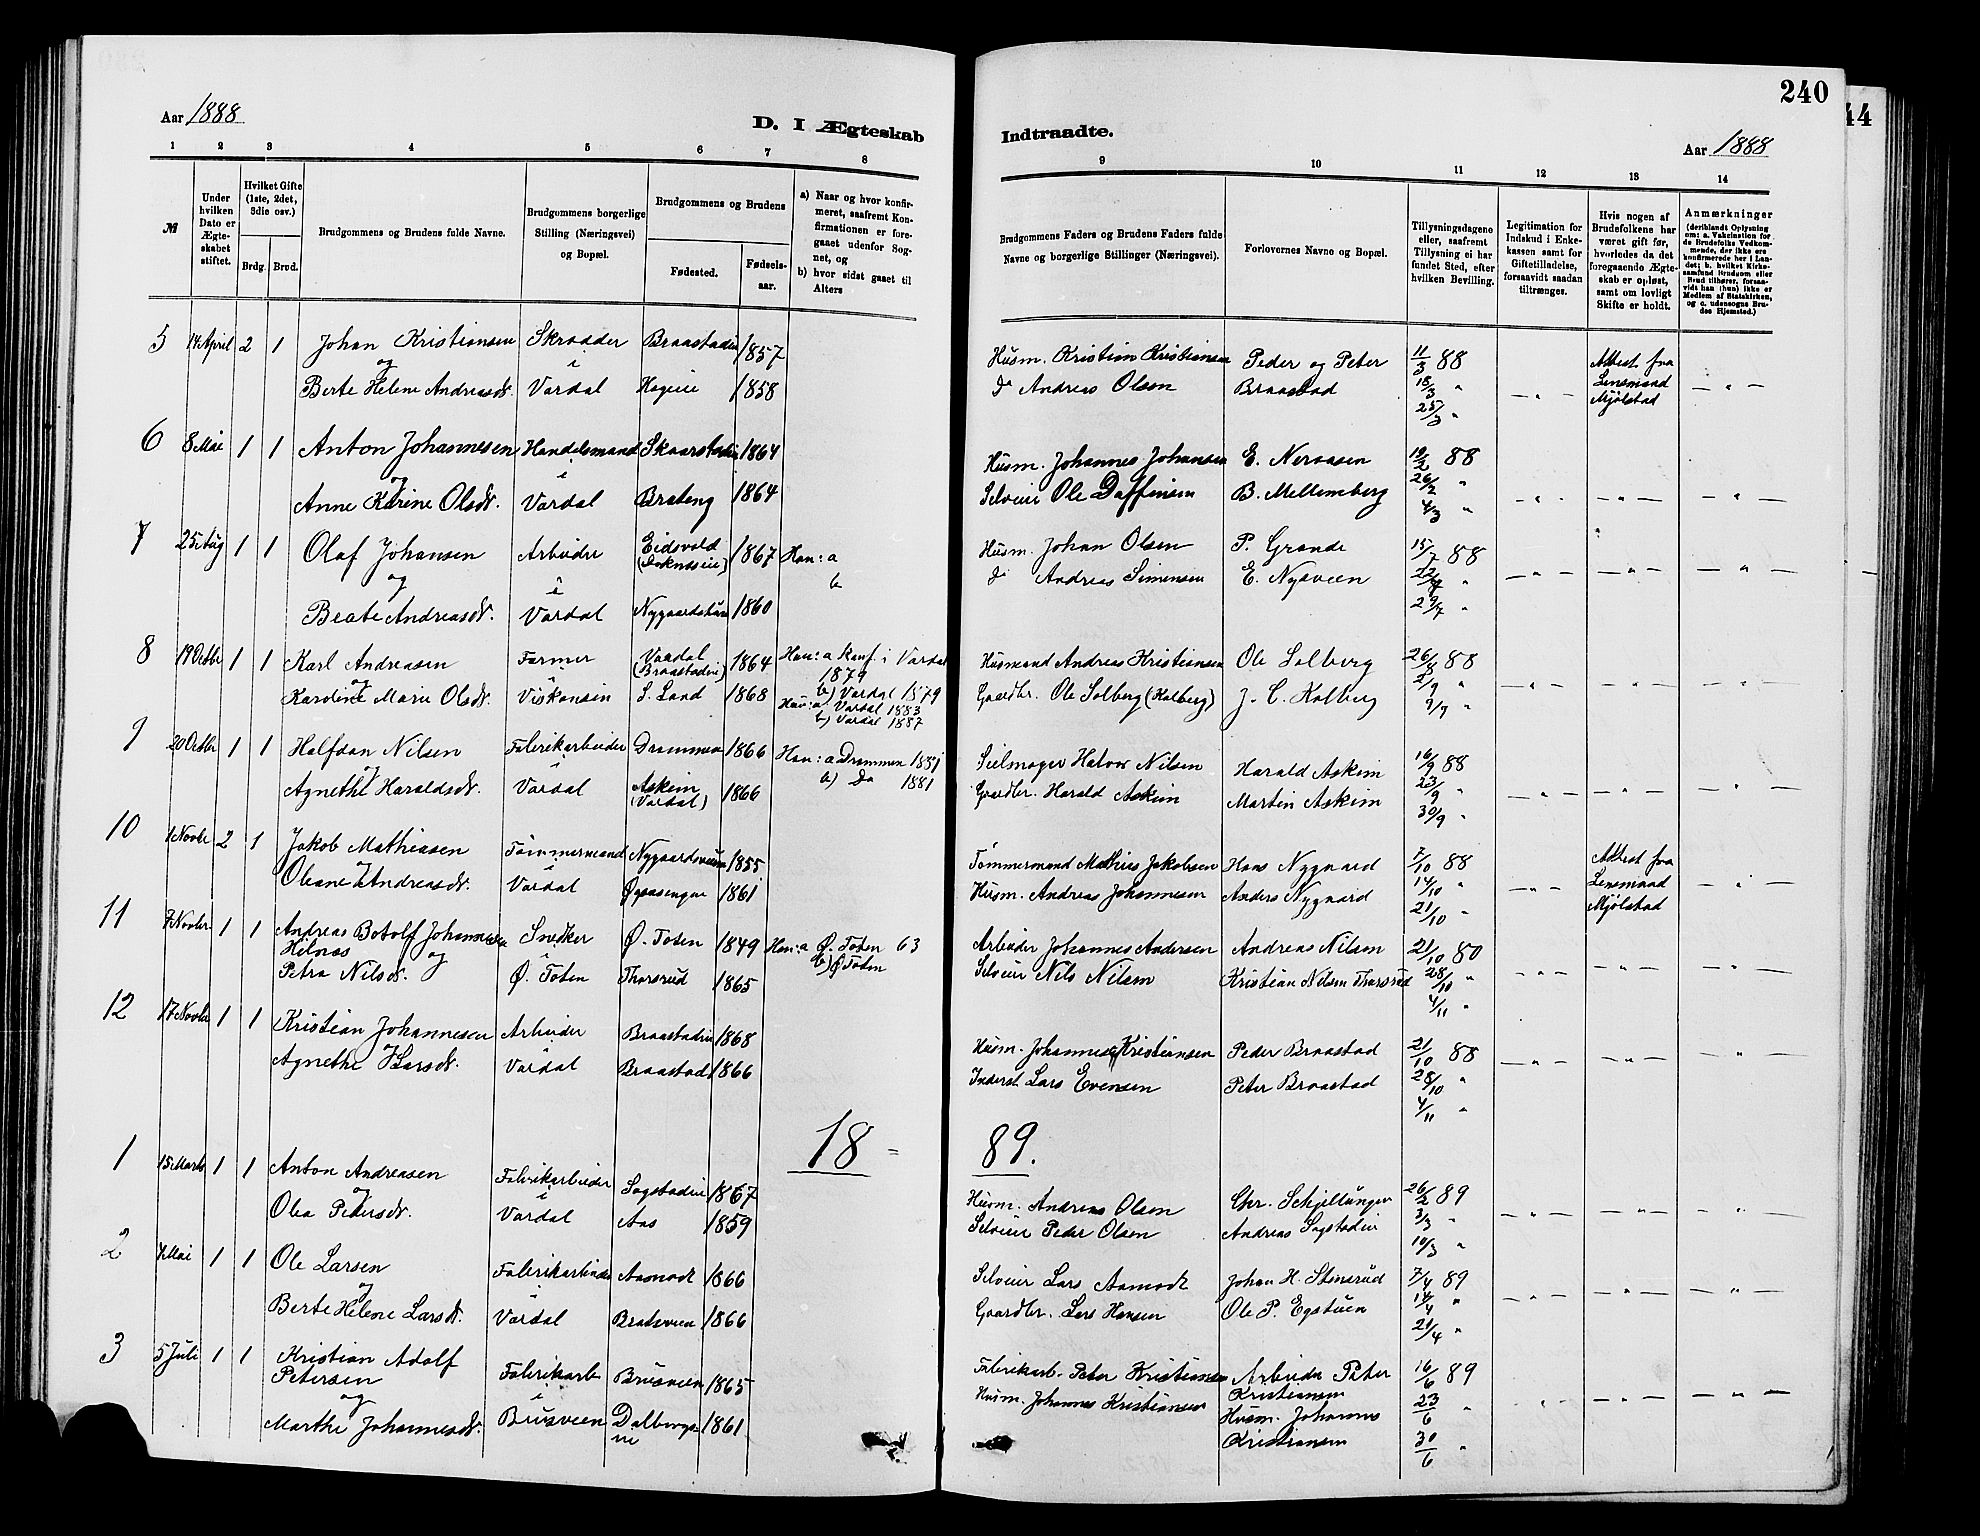 240
44
Aar 1888
D. I Ægteskab Indtraadte.
Aar 1888
1 2 3 4 5 6 7 8 9 10 11 12 13 14
№
Under hvilken Dato er Ægteskabet stiftet.
Hvilket Gifte (1ste, 2det, 3die osv.)
Brdg. Brud.
Brudgommens og Brudens fulde Navne.
Brudgommens borgerlige Stilling (Næringsvei) og Bopæl.
Brudgommens og Brudens
Fødested. Fødselsaar.
a) Naar og hvor konfirmeret, saafremt Konfirmationen er foregaaet udenfor Sognet, og
b) hvor sidst gaaet til Alters
Brudgommens Faders og Brudens Faders fulde Navne og borgerlige Stillinger (Næringsvei).
Forlovernes Navne og Bopæl.
Tillysningsdagene eller, saafremt Tillysning ei har fundet Sted, efter hvilken Bevilling.
Legitimation for Indskud i Enkekassen samt for Giftetilladelse, forsaavidt saadan tiltrænges.
Hvis nogen af Brudefolkene har været gift før, hvorledes da det foregaaende Ægteskab er opløst, samt om lovligt Skifte er holdt.
Anmærkninger (deriblandt Oplysning om: a. Vakcination for de Brudefolks Vedkommende, der ikke ere konfirmerede her i Landet; b. hvilket Kirkesamfund Brudgom eller Brud tilhører, forsaavidt han (hun) ikke er Medlem af Statskirken, og c. udensogns Brudes Hjemsted.)
5 14 April 2 1 Johan Kristiansen Skrædder Braastadeie 1857 Husm. Kristian Kristiansen Peder og Peter 11/3 88 Attest fra
og i
Berte Helene Andreasdr. Vardal Hageeie 1858 do Andreas Olsen Braastad 18/3 " Lensmand
25/3 " Mjølstad
6 8 Mai 1 1 Anton Johannesen Handelsmand Skaarstadeie 1864 Husm. Johannes Johansen E. Neraasen 19/2 88
og i
Anne Karine Olsdr. Vardal Brateng 1864 Selveier Ole Daffinsen B. Mellemberg 26/2 "
4/3 "
7 25 Aug 1 1 Olaf Johansen Arbeider Eidsvold 1867 Han: a Husm. Johan Olsen P. Grande 15/7 88
og i b do Andreas Simensen E. Nysveen 22/7 "
Beate Andreasdr. Vardal Nygaardstuen 1860 29/7 "
8 19 Octbr 1 1 Karl Andreasen Farmer Vardal (Braastadeie) 1864 Han: a konf. i Vardal 1879 Husmand Andreas Kristiansen Ole Solberg 26/8 88
og i b) Vardal 1879
Kardine Marie Olsdr. Viskonsin S. Land 1868 Hun: a) Vardal 1883 Gaardbr. Ole Solberg (Kolberg) J. C. Kolberg 2/9 "
b) Vardal 1887 9/9 "
9 20 Octbr 1 1 Halfdan Nilsen Fabrikarbeider Drammen 1866 Han: a Drammen 1881 Seilmager Halvor Nilsen Harald Askim 16/9 88
og i b) Do 1881
Agnethe Haraldsdr. Vardal Askim (Vardal) 1866 Gaardbr. Harald Askim Martin Askim 23/9 "
30/9 "
10 1 Novbr 2 1 Jakob Mathiasen Tømmermand Nygaardsveien 1855 Tømmermand Mathias Jakobsen Hans Nygaard 7/10 88 Attest fra
og i
Oleane Andreasdr. Vardal 1861 Husm. Andreas Johannesen Anders Nygaard 14/10 " Lensmand
21/10 " Mjølstad
11 7 Novbr 1 1 Andreas Botolf Johannesen Snedker Ø. Toten 1849 Han: a Ø. Toten 63 Arbeider Johannes Andersen Andreas Nilsen 21/10 80
Hilnæs og i b) Ø Toten
Petra Nilsdr. Ø. Toten Thorsrud 1865 Selveier Nils Nilsen Kristian Nilsen Thorsrud 28/10 "
4/11 "
12 17 Novbr 1 1 Kristian Johannesen Arbeider Braastadeie 1868 Husm. Johannes Kristiansen Peder Braastad 21/10 88
og i
Agnethe Larsdr. Vardal Braastad 1866 Inderst Lars Evensen Peter Braastad 28/10 "
4/11 "
18 = 89.
1 15 Marts 1 1 Anton Andreasen Fabrikarbeider Sogstadeie 1867 Husm. Andreas Olsen Chr. Schjellungen 26/2 89
og i
Olea Pedersdr. Vardal Aas 1859 Selveier Peder Olsen Andreas Sogstadeie 3/3 "
10/3 "
2 4 Mai 1 1 Ole Larsen Fabrikarbeider Aamodt 1866 Selveier Lars Aamodt Johan H. Stensrud 7/4 89
og i
Berte Helene Larsdr. Vardal Bratsveen 1866 Gaardbr. Lars Hansen Ole P. Egstuen 14/4 "
21/4 "
3 5 Juli 1 1 Kristian Adolf Petersen Fabrikarb Brusveen 1865 Fabrikarb. Peter Kristiansen Arbeider Peter Kristiansen 16/6 89
og i
Marthe Johannesdr. Brusveen Dalbergseie 1861 Husm. Johannes Kristiansen Husm. Johannes Kristiansen 23/6 "
30/6 "